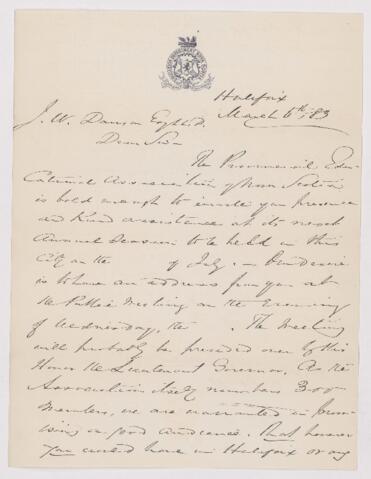 Halifax
March 6th, 83
J. W. Dawson Esq
Dear Sir
The Provincial Edu-
cational Association of Nova Scotia
is bold enough to invite your presence
and kind assistance at its next
Annual Session to be held in this
City on the of July. Our desire
is to have an address from you at
the Public Meeting on the Evening
of Wednesday, the . The Meeting
will probably be presided over by His
Honor the Lieutenant Governor. As the
Association itself numbers 300
Members, we are warranted in prom-
ising a good audience. That however
you would have in Halifax on any